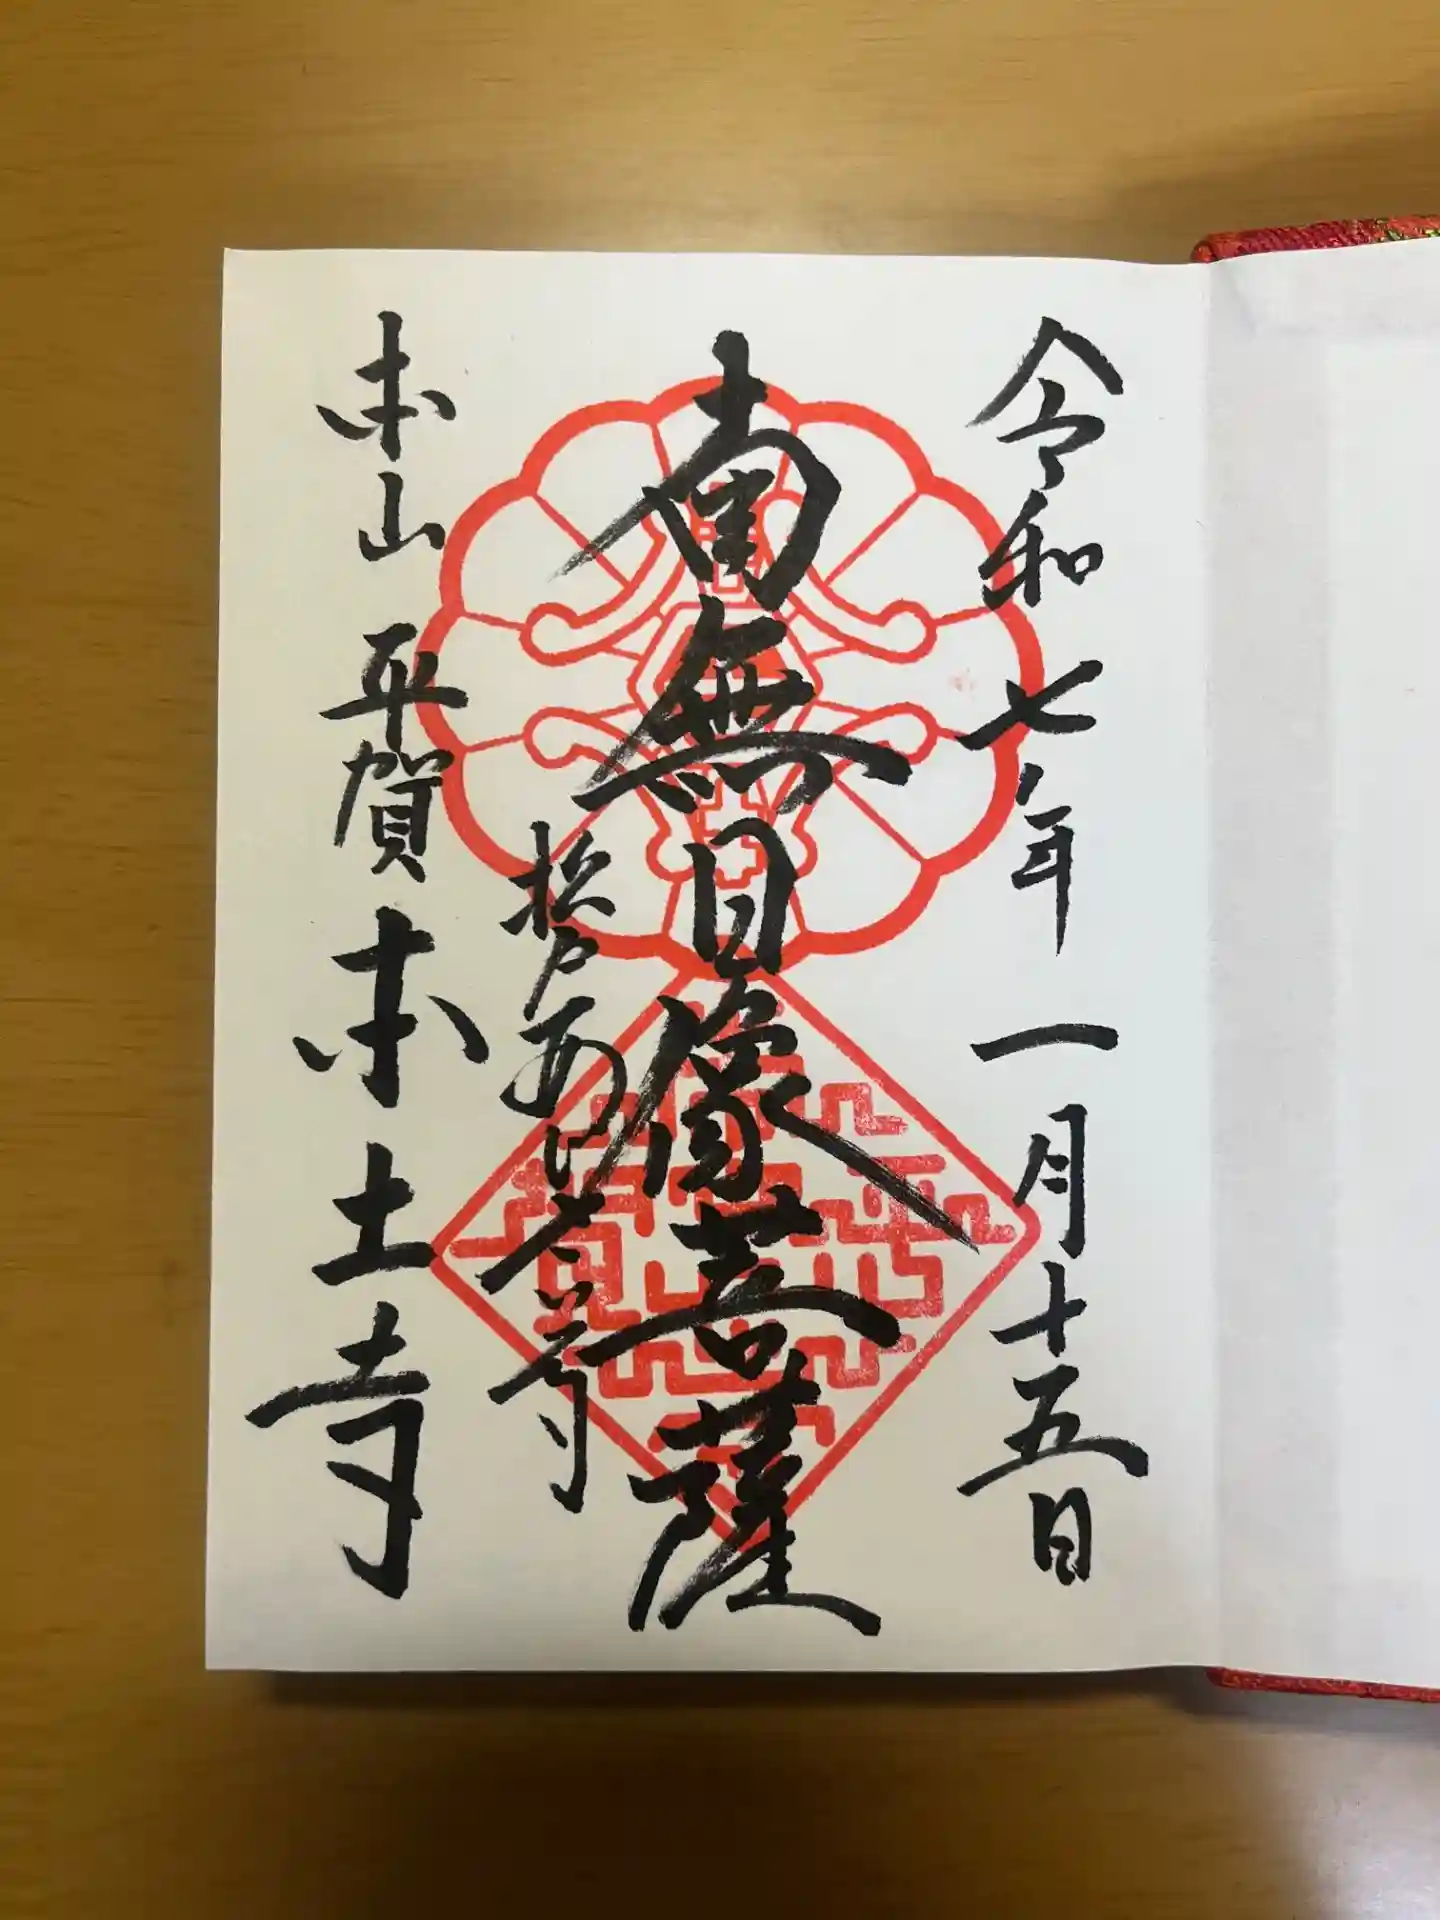 令和七年 一月十五日
南無日像菩薩
松戸
本山 平賀 本土寺